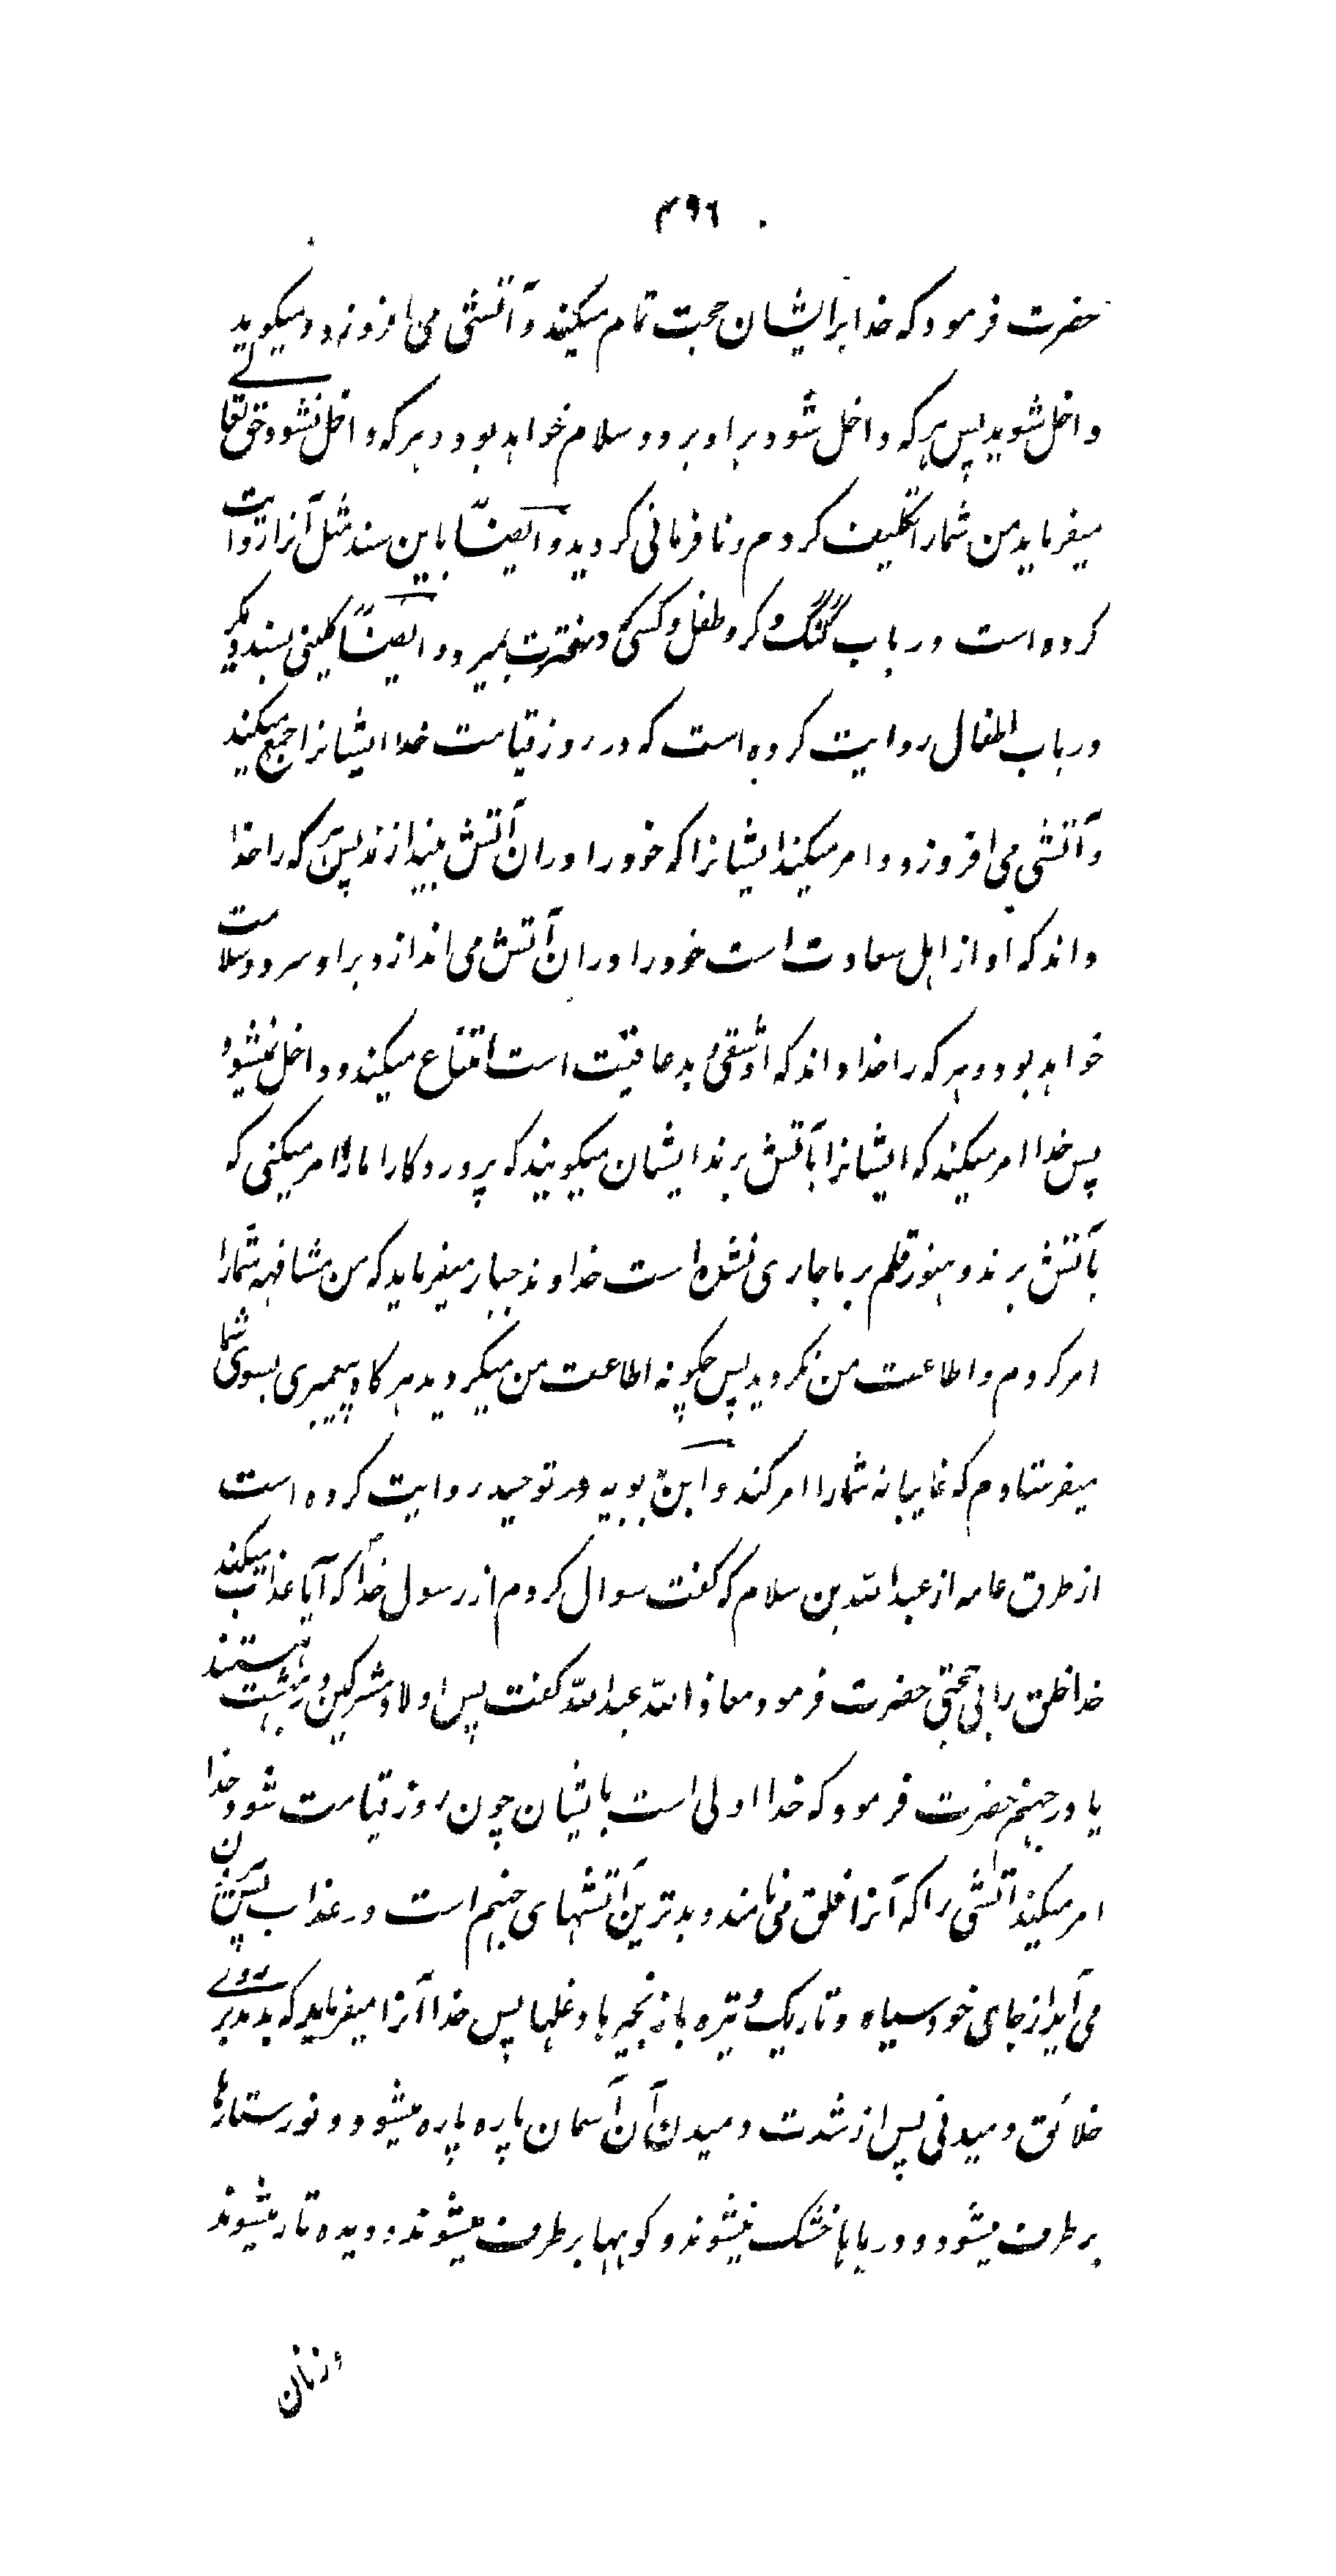 ۴۹۶
حضرت فرمود که خدا بر ایشان حجت تمام میکند و آتشی می افروزد و میکوید
داخل شوید پس هر که داخل شود بر او برد و سلام خواهد بود و هر که داخل نشود حق تعالی
میفرماید من شمارا تکلیف کردم و نافرمانی کردید و ایضاً باین سند مثل آنرا روایت
کرده است در باب گنگ و کر و طفل و کسی که در فترت بمیرد و ایضاً کلینی بسند دیگر
در باب اطفال روایت کرده است که در روز قیامت خدا ایشانرا جمع میکند
و آتشی می افروزد و امر میکند ایشانرا که خود را در ان آتش بیندازند پس هر که را خدا
داند که او از اهل سعادت است خود را در ان آتش می اندازد و بر او سرد و سلامت
خواهد بود و هر که را خدا داند که او شقی و بد عاقبت است امتناع میکند و داخل نمیشود
پس خدا امر میکند که ایشانرا بآتش برند ایشان میکویند که پروردکارا مارا امر میکنی که
بآتش برند و هنوز قلم بر ما جاری نشده است خداوند جبار میفرماید که من مشافهه شمارا
امر کردم و اطاعت من نکردید پس چکونه اطاعت من میکردید هر کاه پیغمبری بسوی شما
میفرستادم که غایبانه شمارا امر کند و ابن بابویه در توحید روایت کرده است
از طرق عامه از عبدالله بن سلام که کفت سوال کردم از رسول خدا ص که آیا عذاب میکند
خدا خلق را بی حجتی حضرت فرمود معاذ الله عبدالله کفت پس اولاد مشرکین در بهشت هستند
یا در جهنم حضرت فرمود که خدا اولی است بایشان چون روز قیامت شود خدا
امر میکند آتشی را که آنرا فلق می نامند و بدترین آتشهای جهنم است در عذاب پس بیرون
می آید از جای خود سیاه و تاریک و تیره با زنجیرها و غلها پس خدا آنرا میفرماید که بدمد بر روے
خلائق دمیدنی پس از شدت دمیدن آن آسمان پاره پاره میشود و نور ستارها
بر طرف میشود و دریاها خشک میشوند و کوهها بر طرف میشوند و دیده تار میشوند
و زنان